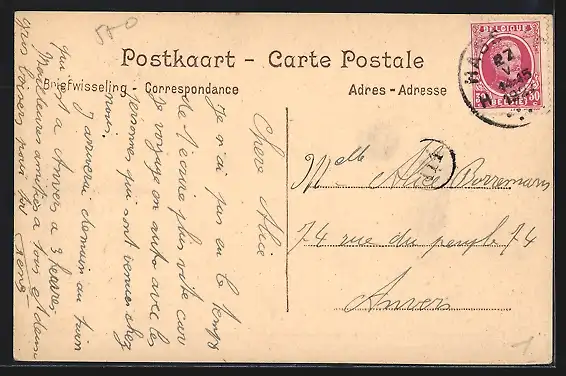 500
Postkaart - Carte Postale
Briefwisseling - Correspondance
Adres - Adresse
BELGIQUE
BELGIË
27
V
Chere Alice
Je n'ai pas eu le temps
de t'ecrire plus vite car
je voyage en auto avec les
personnes qui sont venues chez
nous.
J'arriverai demain au train
qui est a Anvers a 3 heures
Meilleures amitiés a tous et deux
gros baisers pour toi
René
Melle Alice
74 rue du peuple 74
Anvers
1